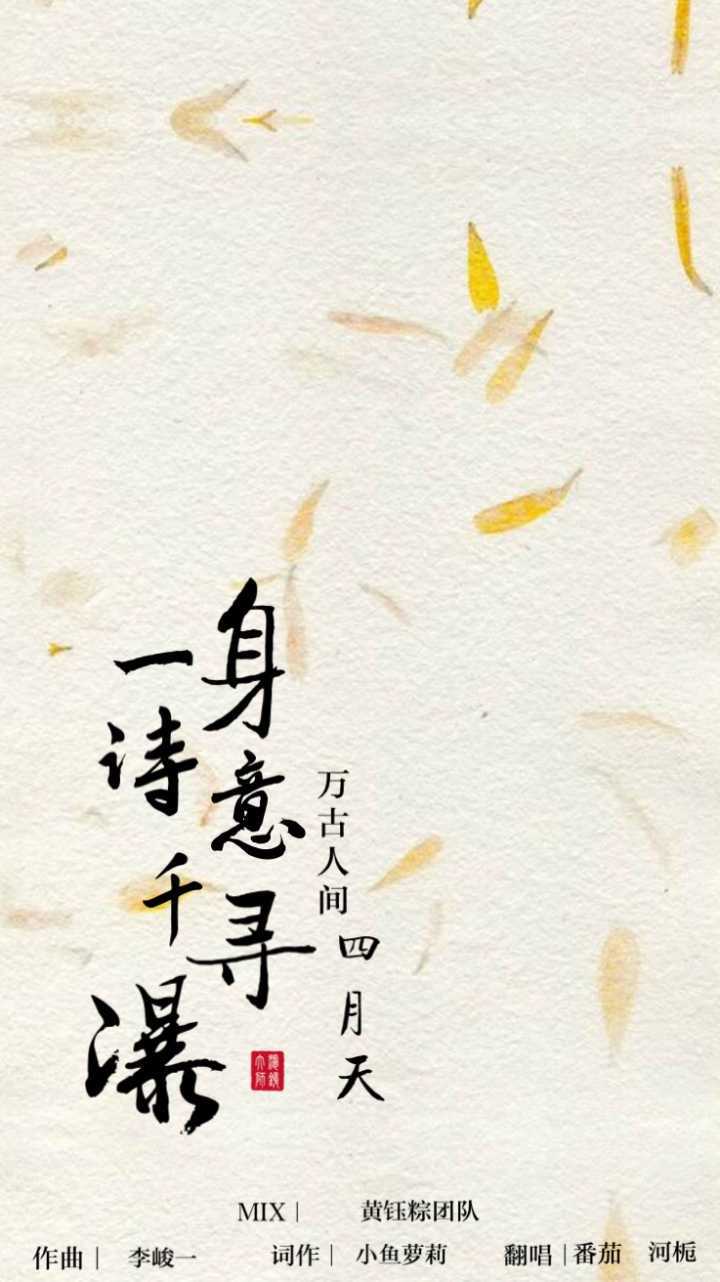 一身诗意千寻瀑
万古人间四月天
MIX | 黄钰粽团队
作曲 | 李峻一 词作 | 小鱼萝莉 翻唱 | 番茄 河栀